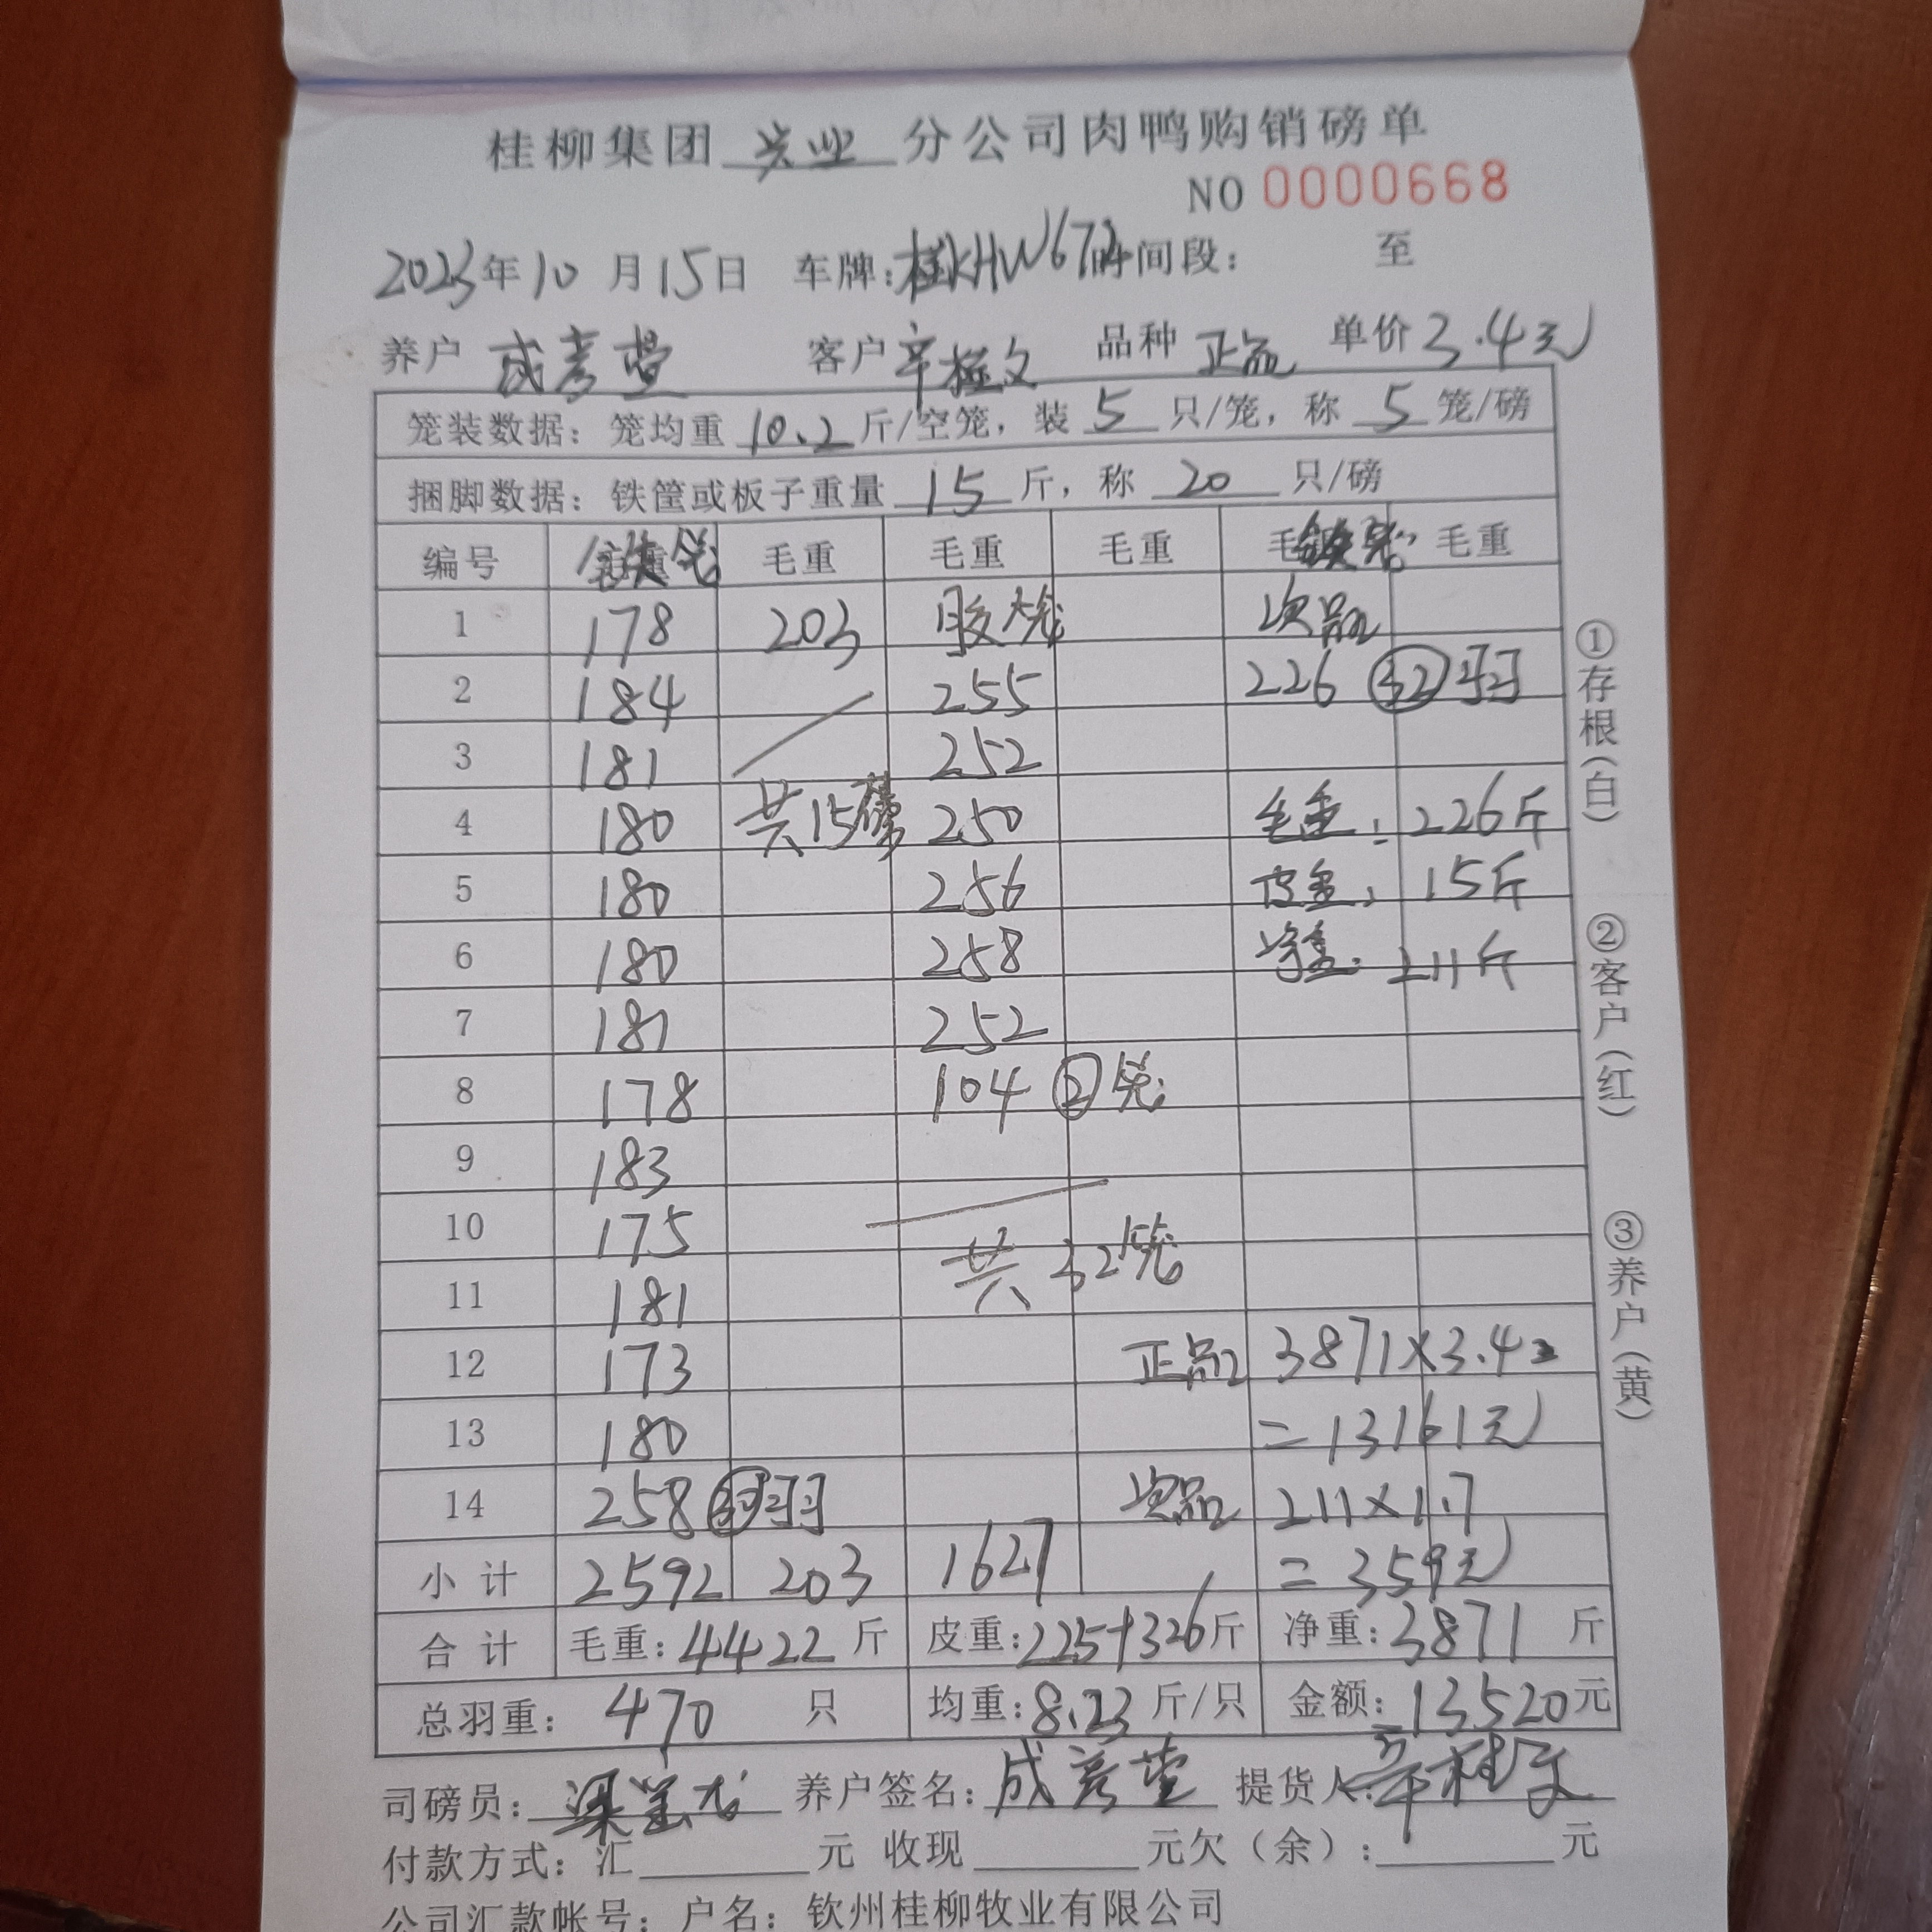 桂柳集团 兴业 分公司肉鸭购销磅单
NO 0000668
2023年10月15日 车牌:桂KHW67 时间段: 至
养户 成彦莹 客户 辛桂文 品种 正品 单价 3.4元
笼装数据: 笼均重 10.2 斤/空笼, 装 5 只/笼, 称 5 笼/磅
捆脚数据: 铁筐或板子重量 15 斤, 称 20 只/磅
编号 铁笼 毛重 毛重 毛重 铁笼 毛重
1 178 203 胶笼 次品
2 184 255 226 32羽
3 181 252
4 180 共15磅 250 毛重: 226斤
5 180 256 皮重: 15斤
6 180 258 净重: 211斤
7 181 252
8 178 104 2笼
9 183
10 175 共32笼
11 181
12 173 正品 3871×3.4
13 180 =13161元
14 258 羽 次品 211×1.7
小计 2592 203 1627 =359元
合计 毛重: 4422 斤 皮重: 225+326斤 净重: 3871 斤
总羽重: 470 只 均重: 8.23 斤/只 金额: 13520元
司磅员: 梁 养户签名: 成彦莹 提货人: 辛桂文
付款方式: 汇 元 收现 元欠(余): 元
公司汇款帐号: 户名: 钦州桂柳牧业有限公司
①存根(白)
②客户(红)
③养户(黄)